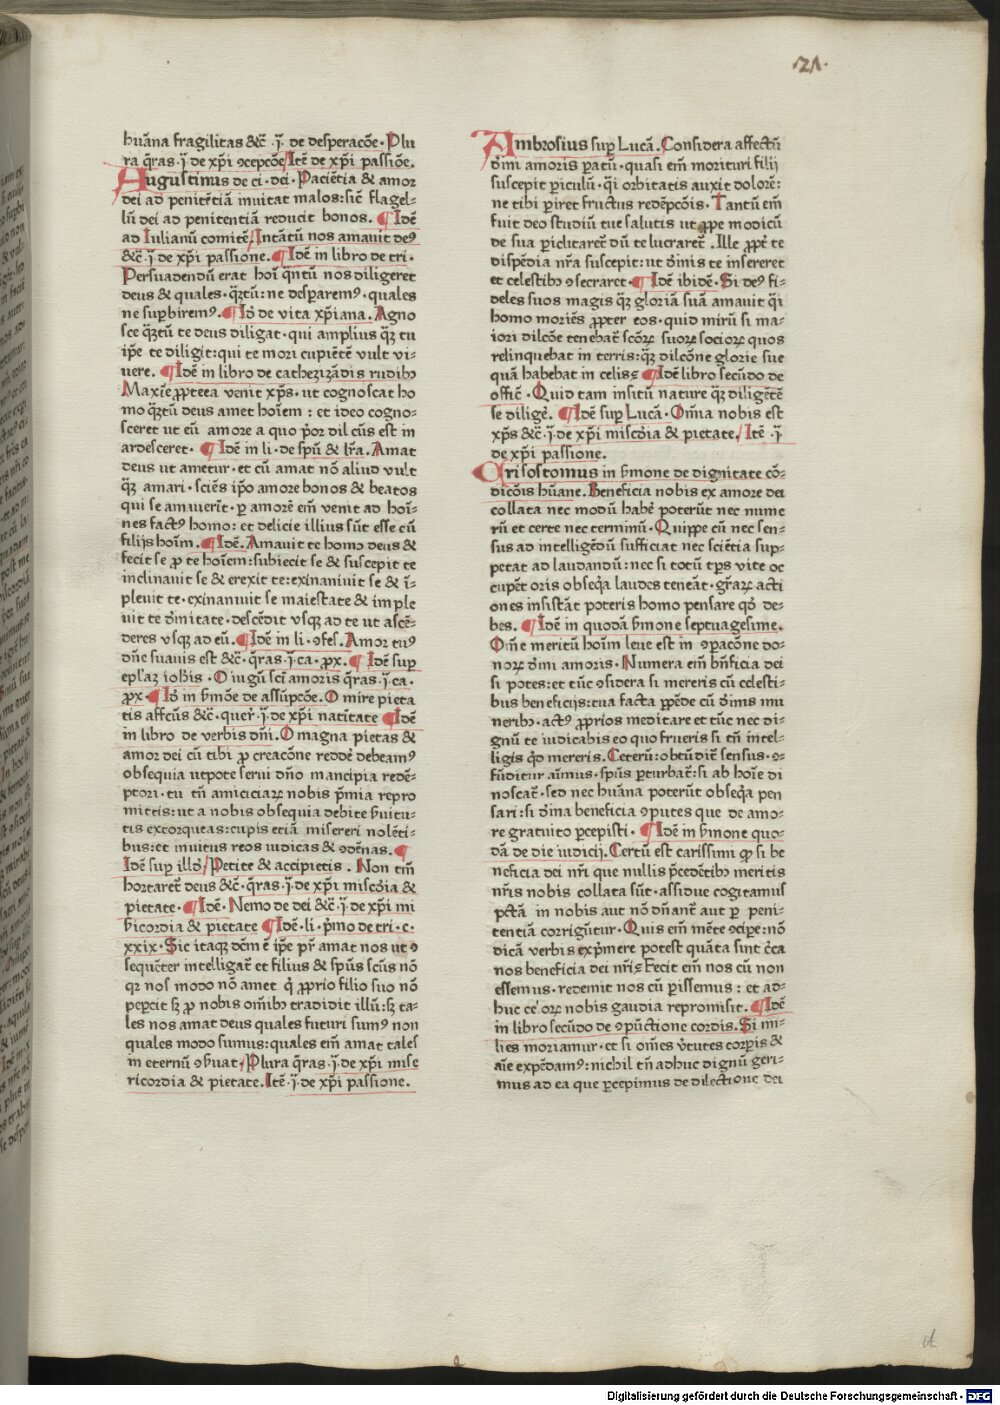 .21.
huãna fragilitas &c̃ .ĩ. de desperacõe. Plu
ra q̃ras .ĩ. de xp̃i ɔcepcõe Itẽ de xp̃i passiõe.
Augustinus de ci. dei. Paciẽtia & amor
dei ad penitẽtiã inuitat malos: sic̃ flagel⸗
lũ dei ad penitentiã reducit bonos. ¶ Idẽ
ad Iulianũ comitẽ / Intãtũ nos amauit deꝰ
&c̃ .ĩ. de xp̃i passione. ¶ Idẽ in libro de tri.
Persuadendũ erat hoĩ q̃ntũ nos diligeret
deus & quales. q̃ꝫtũ: ne desꝑaremꝰ. quales
ne suꝑbiremꝰ. ¶ Iõ de vita xp̃iana. Agno
sce q̃ꝫtũ te deus diligat. qui amplius q̃ꝫ tu
ip̃e te diligit: qui te mori cupiẽtẽ vult vi⸗
uere. ¶ Idẽ in libro de cathezizãdis rudibꝰ
Maxiẽ ꝓpteea venit xp̃s. ut cognoscat ho
mo q̃ꝫtũ deus amet hoĩem: et ideo cogno⸗
sceret ut eũ amore a quo p̃or dilc̃us est in
ardesceret. ¶ Idẽ in li. de sp̃u & lr̃a. Amat
deus ut ametur. et cũ amat nõ aliud vult
q̃ꝫ amari. sciẽs ip̃o amore bonos & beatos
qui se amuerĩt. ꝑ amorẽ em̃ venit ad hoĩ⸗
nes factꝰ homo: et delicie illius sũt esse cũ
filijs hoĩm. ¶ Idẽ. Amauit te homo deus &
fecit se ꝓ te hoĩem: subiecit se & suscepit te
inclinauit se & erexit te: exinaniuit se & ĩ⸗
pleuit te. exinanuit se maiestate & imple
uit te d̃initate. descẽdit vsqꝫ ad te ut ascẽ⸗
deres vsqꝫ ad eũ. ¶ Idẽ in li. ɔfes̃. Amor tuꝰ
dñe suauis est &c̃. q̃ras .ĩ. ca. ꝓx. ¶ Idẽ suꝑ
ep̃laꝫ iohis̃. O iugũ scĩ amoris q̃ras .ĩ. ca.
ꝓx. ¶ Iõ in s̃mõe de assũpcõe. O mire pieta
tis affcũs &c̃. quer̃ .ĩ. de xp̃i natitate ¶ Idẽ
in libro de verbis dñi. O magna pietas &
amor dei cũ tibi ꝓ creacõne redde debeamꝰ
obsequia utpote serui dño mancipia redẽ⸗
ptori. tu tñ amiciciaꝝ nobis p̃mia repro
mittis: ut a nobis obsequia debite s̃uitu⸗
tis extorqueas: cupis etiã misereri nolẽti⸗
bus: et inuitus reos iudicas & ɔdẽnas. ¶
Idẽ suꝑ illõ / Petite & accipietis. Non em̃
hortaret̃ deus &c̃. q̃ras .ĩ. de xp̃i misc̃dia &
pietate. ¶ Idẽ. Nemo de dei &c̃ .ĩ. de xp̃i mi
s̃icordia & pietate ¶ Idẽ. li. p̃mo de tri. c.
xxix. Sic itaqꝫ dc̃m ẽ ip̃e pr̃ amat nos ut ɔ
sequẽter intelligat̃ et filius & sp̃us scũs nõ
qꝛ nos modo nõ amet q̃ ꝓprio filio suo nõ
peꝑcit sꝫ ꝓ nobis om̃ibꝰ tradidit illũ: sꝫ ta⸗
les nos amat deus quales futuri sumꝰ non
quales modo sumus: quales em̃ amat tales
in eternũ ɔs̃uat / Plura q̃ras .ĩ. de xp̃i mise
ricordia & pietate. Itẽ .ĩ. de xp̃i passione.
Ambrosius suꝑ Lucã. Considera affectũ
d̃ini amoris ꝑatũ. quasi em̃ morituri filij
suscepit ꝑiculũ. q̃i orbitatis auxit dolorẽ:
ne tibi ꝑiret fructus redẽpcõis. Tantũ em̃
fuit deo studiũ tue salutis ut ꝓpe modicũ
de sua ꝑiclitaret̃ dũ te lucraret̃. Ille ꝓpt̃ te
dispẽdia nr̃a suscepit: ut d̃inis te insereret
et celestibꝰ ɔsecraret. ¶ Idẽ ibidẽ. Si deꝰ fi⸗
deles suos magis q̃ꝫ gloriã suã amauit q̃i
homo moriẽs ꝓpter eos. quid mirũ si ma⸗
iori dilcõe tenebat̃ scõꝝ suoꝝ socioꝝ quos
relinquebat in terris: q̃ꝫ dilcõne glorie sue
quã habebat in celis ¶ Idẽ libro secũdo de
offic̃. Quid tam insitũ nature q̃ꝫ diligẽtẽ
se diligẽ. ¶ Idẽ suꝑ Lucã. Om̃ia nobis est
xp̃s &c̃ .ĩ. de xp̃i misc̃dia & pietate / Itẽ .ĩ.
de xp̃i passione.
Crisostomus in s̃mone de dignitate cõ⸗
dicõis hũane. Beneficia nobis ex amore dei
collata nec modũ habẽ poterũt nec nume
rũ et certe nec terminũ. Quippe cũ nec sen⸗
sus ad intelligẽdũ sufficiat nec sciẽtia sup⸗
petat ad laudandũ: nec si totũ tp̃s vite oc
cupẽt oris obseq̃a laudes teneãt. gr̃aꝝ acti
ones insistãt poteris homo pensare qõ de⸗
bes. ¶ Idẽ in quodã s̃mone septuagesime.
Om̃e meritũ hoĩm leue est in ɔpacõne do⸗
noꝝ d̃ini amoris. Numera em̃ bñficia dei
si potes: et tũc ɔsidera si mereris cũ celesti⸗
bus beneficijs: tua facta ꝑpẽde cũ d̃inis mu
neribꝰ. actꝰ ꝓprios meditare et tũc nec di⸗
gnũ te iudicabis eo quo frueris si tñ intel⸗
ligis qd̃ mereris. Ceterũ: obtũdit̃ sensus. ɔ⸗
fũditur aĩmus. sp̃us ꝑturbat̃: si ab hoĩe di
noscat̃. sed nec huana poterũt obseq̃a pen
sari: si d̃ina beneficia ɔputes que de amo⸗
re gratuito ꝑcepisti. ¶ Idẽ in s̃mone quo⸗
dã de die iudicij. Certũ est carissimi ꝙ si be
neficia dei nr̃i que nullis p̃cedẽtibꝰ meritis
nr̃is nobis collata sũt. assidue cogitamus
pc̃tã in nobis aut nõ dñant̃ aut ꝑ peni⸗
tentiã corrigũtur. Quis em̃ mẽte ɔcipe: nõ
dicã verbis exp̃mere potest quãta sint c̃ca
nos beneficia dei nr̃i Fecit em̃ nos cũ non
essemus. redemit nos cũ ꝑissemus: et ad⸗
huc cel'oꝝ nobis gaudia repromisit. ¶ Idẽ
in libro secũdo de ɔpũctione cordis. Si mi⸗
lies moriamur. et si om̃es ṽtutes corꝑis &
aĩe expẽdamꝰ: nichil tñ adhuc dignũ geri⸗
mus ad ea que ꝑcepimus de dilectione dei
d
Digitalisierung gefördert durch die Deutsche Forschungsgemeinschaft - DFG